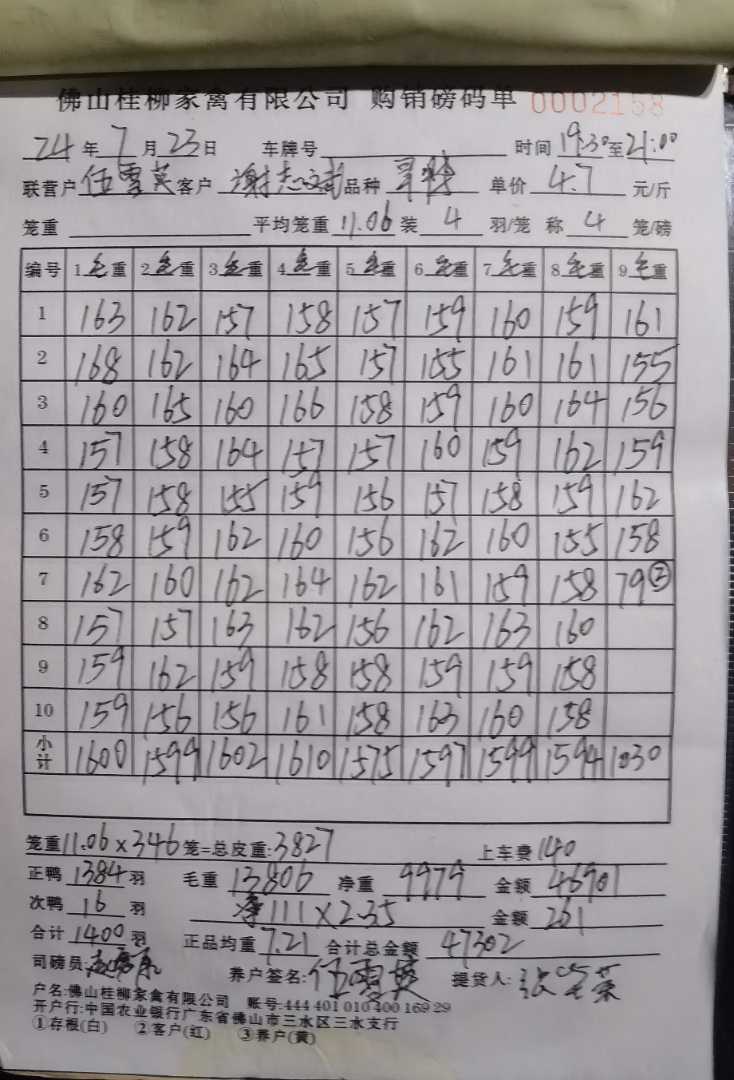 佛山桂柳家禽有限公司 购销磅码单 0002158
24 年 7 月 23 日 车牌号 时间 19:30 至 21:00
联营户 伍雪英 客户 谢志斌 品种 单价 4.7 元/斤
笼重 平均笼重 11.06 装 4 羽/笼 称 4 笼/磅
编号 1毛重 2毛重 3毛重 4毛重 5毛重 6毛重 7毛重 8毛重 9毛重
1 163 162 157 158 157 159 160 159 161
2 168 162 164 165 157 155 161 161 155
3 160 165 160 166 158 159 160 164 156
4 157 158 164 157 157 160 159 162 159
5 157 158 155 159 156 157 158 159 162
6 158 159 162 160 156 162 160 155 158
7 162 160 162 164 162 161 159 158 79②
8 157 157 163 162 156 162 163 160
9 159 162 159 158 158 159 159 158
10 159 156 156 161 158 163 160 158
小计 1600 1599 1602 1610 1575 1597 1599 1594 1030
笼重 11.06×346 笼=总皮重: 3827 上车费 140
正鸭 1384 羽 毛重 13806 净重 9979 金额 46901
次鸭 16 羽 净111×2.35 金额 261
合计 1400 羽 正品均重 7.21 合计总金额 47302
司磅员: 养户签名: 伍雪英 提货人:
户名:佛山桂柳家禽有限公司 账号:444 401 010 400 169 29
开户行:中国农业银行广东省佛山市三水区三水支行
①存根(白) ②客户(红) ③养户(黄)